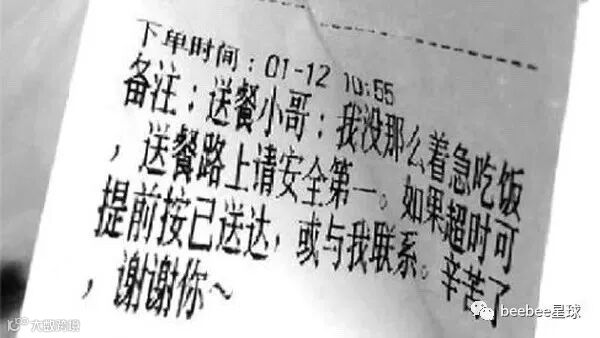 下单时间：01-12 10:55
备注：送餐小哥：我没那么着急吃饭
，送餐路上请安全第一。如果超时可
提前按已送达，或与我联系。辛苦了
，谢谢你~
beebee星球
大数跨境